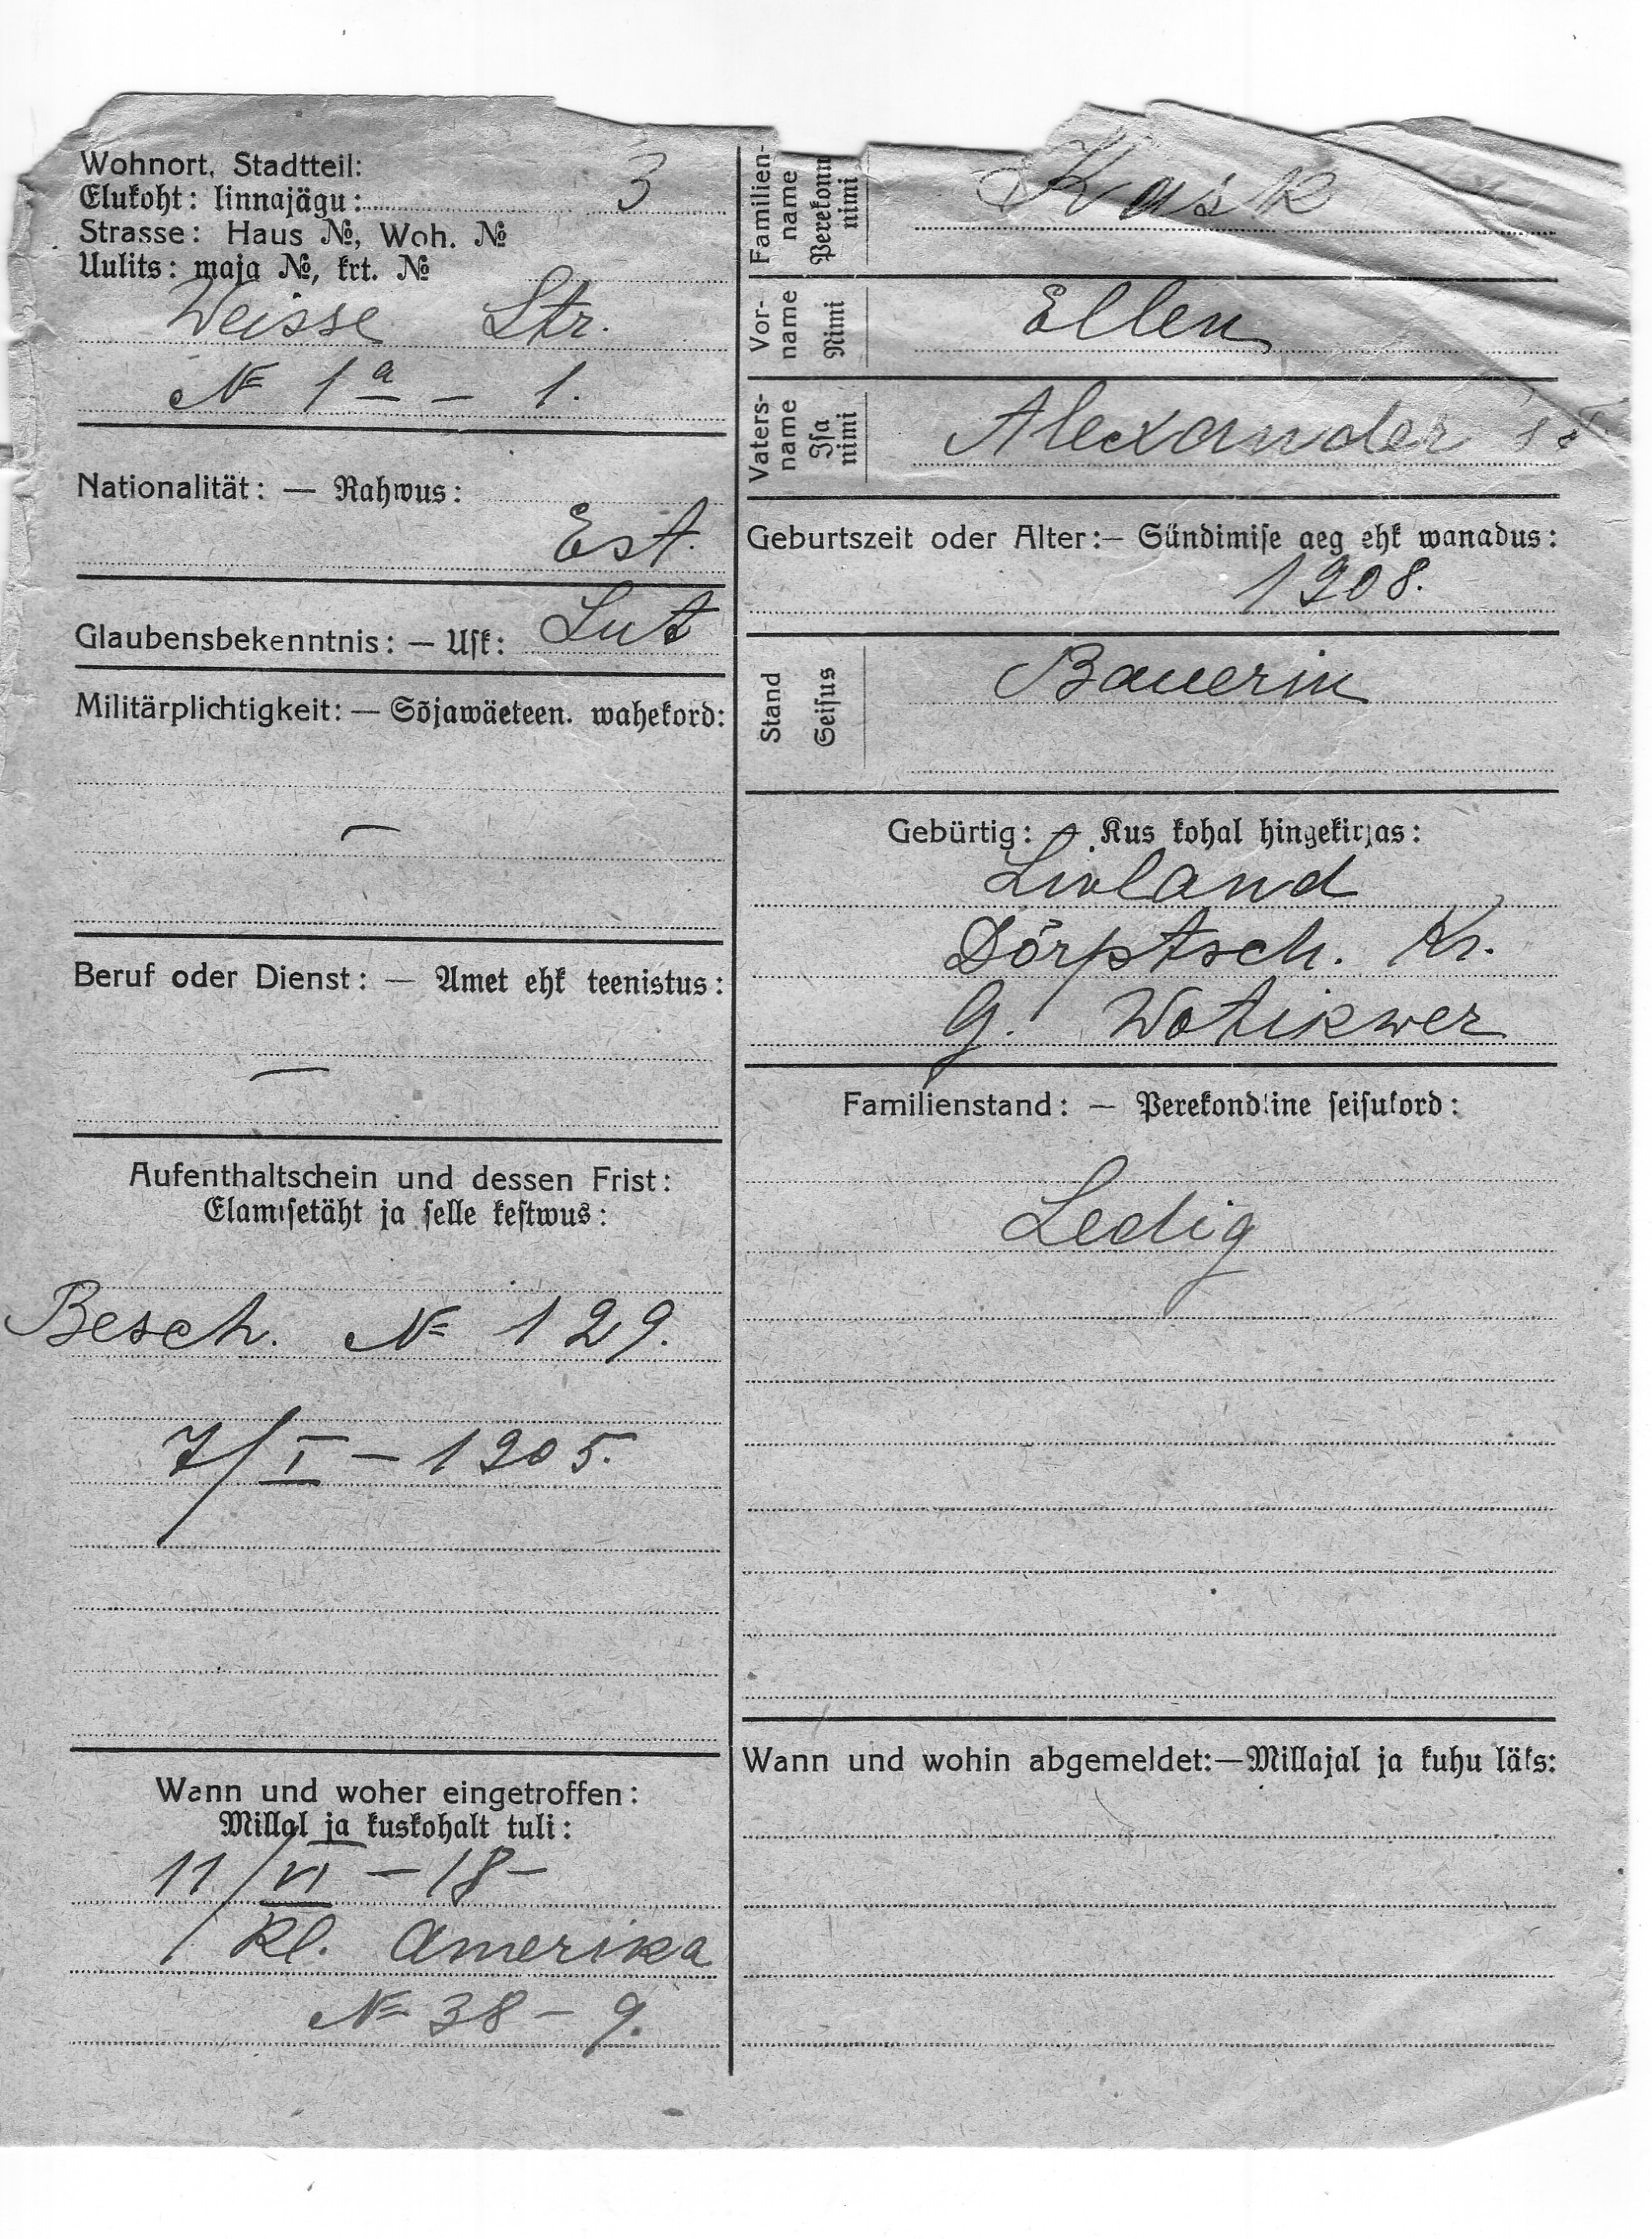 Wohnort, Stadtteil:
Elukoht: linnajägu: 3
Strasse: Haus №, Woh. №
Uulits: maja №, krt. №
Weisse Str.
№ 1a – 1.
Nationalität: — Rahwus:
Est.
Glaubensbekenntnis: — Usk: Lut
Militärplichtigkeit: — Sõjawäeteen. wahekord:
—
Beruf oder Dienst: — Amet ehk teenistus:
—
Aufenthaltschein und dessen Frist:
Elamisetäht ja selle kestwus:
Besch. № 129.
7/I – 1905.
Wann und woher eingetroffen:
Millal ja kuskohalt tuli:
11/VI – 18 –
Kl. Amerika
№ 38 – 9.
Familien-
name
Perekonn
nimi
Kask
Vor-
name
Nimi
Ellen
Vaters-
name
Isa
nimi
Alexander
Geburtszeit oder Alter:— Sündimise aeg ehk wanadus:
1908.
Stand
Seisus
Bauerin
Gebürtig: — Kus kohal hingekirjas:
Livland
Dörptsch. Kr.
G. Wotikwer
Familienstand: — Perekondline seisukord:
Ledig
Wann und wohin abgemeldet:—Millajal ja kuhu läks: